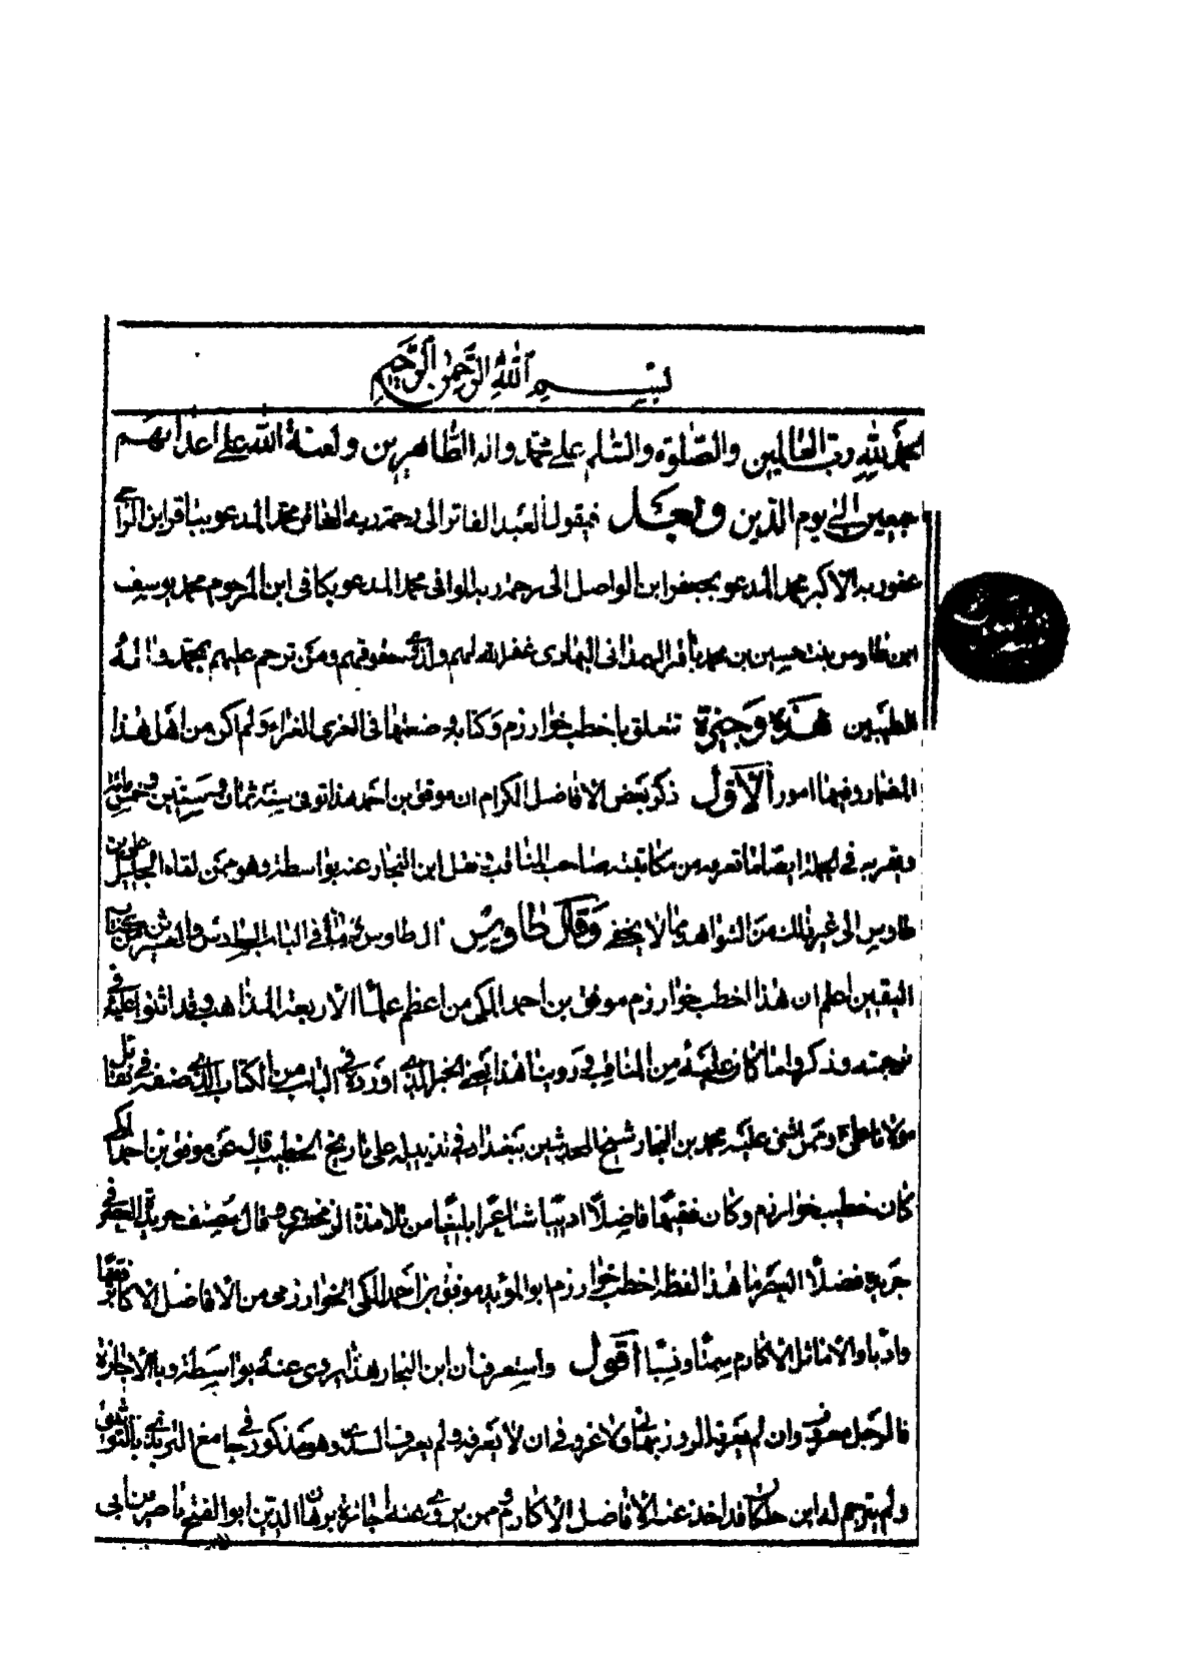 بسم الله الرحمن الرحيم
الحمد لله رب العالمين والصلوة والسلم على محمد واله الطاهرين ولعنة الله على اعدائهم
اجمعين الى يوم الدين وبعد فيقول العبد الفاتر الى رحمة ربه الغافر محمد المدعو بباقر ابن الراجى
عفو ربه الاكبر محمد المدعو بجعفر ابن الواصل الى رحمة ربه الوافى محمد المدعو بكافى ابن المرحوم محمد يوسف
ابن طاوس بنت حسين بن محمد باقر الهمدانى البهارى غفر الله لهم ولذوى حقوقهم ومن ترحم عليهم بمحمد واله
الطيبين هذه وجيزة تتعلق باخطب خوارزم وكتابه وضعتها فى الغرى الغراء ولم اكن من اهل هذا
المضمار وفيها امور الاول ذكر بعض الافاضل الكرام ان موفق بن احمد هذا توفى سنة ثمان وستين وخمس مائة
ويقربه فى الجملة ايضا ما تعرفه من مكاتبته صاحب المناقب ونقل ابن النجار عنه بواسطة وهو ممن لقاه الجليل على بن
طاوس الى غير ذلك من الشواهد مما لا يخفى وقال طاويس ال طاوس فى الباب السادس والعشرين من كتاب
اليقين اعلم ان هذا اخطب خوارزم موفق بن احمد المكى من اعظم علماء الاربعة المذاهب وقد اثنوا عليه فى
ترجمته وذكروا ما كان عليه من المناقب وروينا هذا الخبر الذى اورده فى الباب من الكتاب الذى صنفه فى فضائل
مولانا على وممن اثنى عليه محمد بن النجار شيخ المحدثين ببغداد فى تذييله على تاريخ الخطيب قال عن موفق بن احمد المكى
كان خطيب خوارزم وكان فقيها فاضلا اديبا شاعرا بليغا من تلامذة الزمخشرى وقال مصنف خريدة القصر فى
جريدة فضلاء العصر ما هذا لفظه اخطب خوارزم ابو المؤيد موفق بن احمد المكى الخوارزمى من الافاضل الاكابر فقها
وادبا والاماثل الاكارم سمتا ونسبا اقول واستعرف ان ابن النجار هذا يروى عنه بواسطة وبالاجازة
فالرجل معروف وان لم يعرفه الروزبهانى ولا غرو فى ان لا يعرفه ولم يعرف السدى وهو مذكور فى جامع الترمذى بالتوثيق
ولم يترجم له ابن خلكان قد اخذ عنه الافاضل الاكارم وممن يروى عنه اجازة برهان الدين ابو الفتح ناصر بن ابى